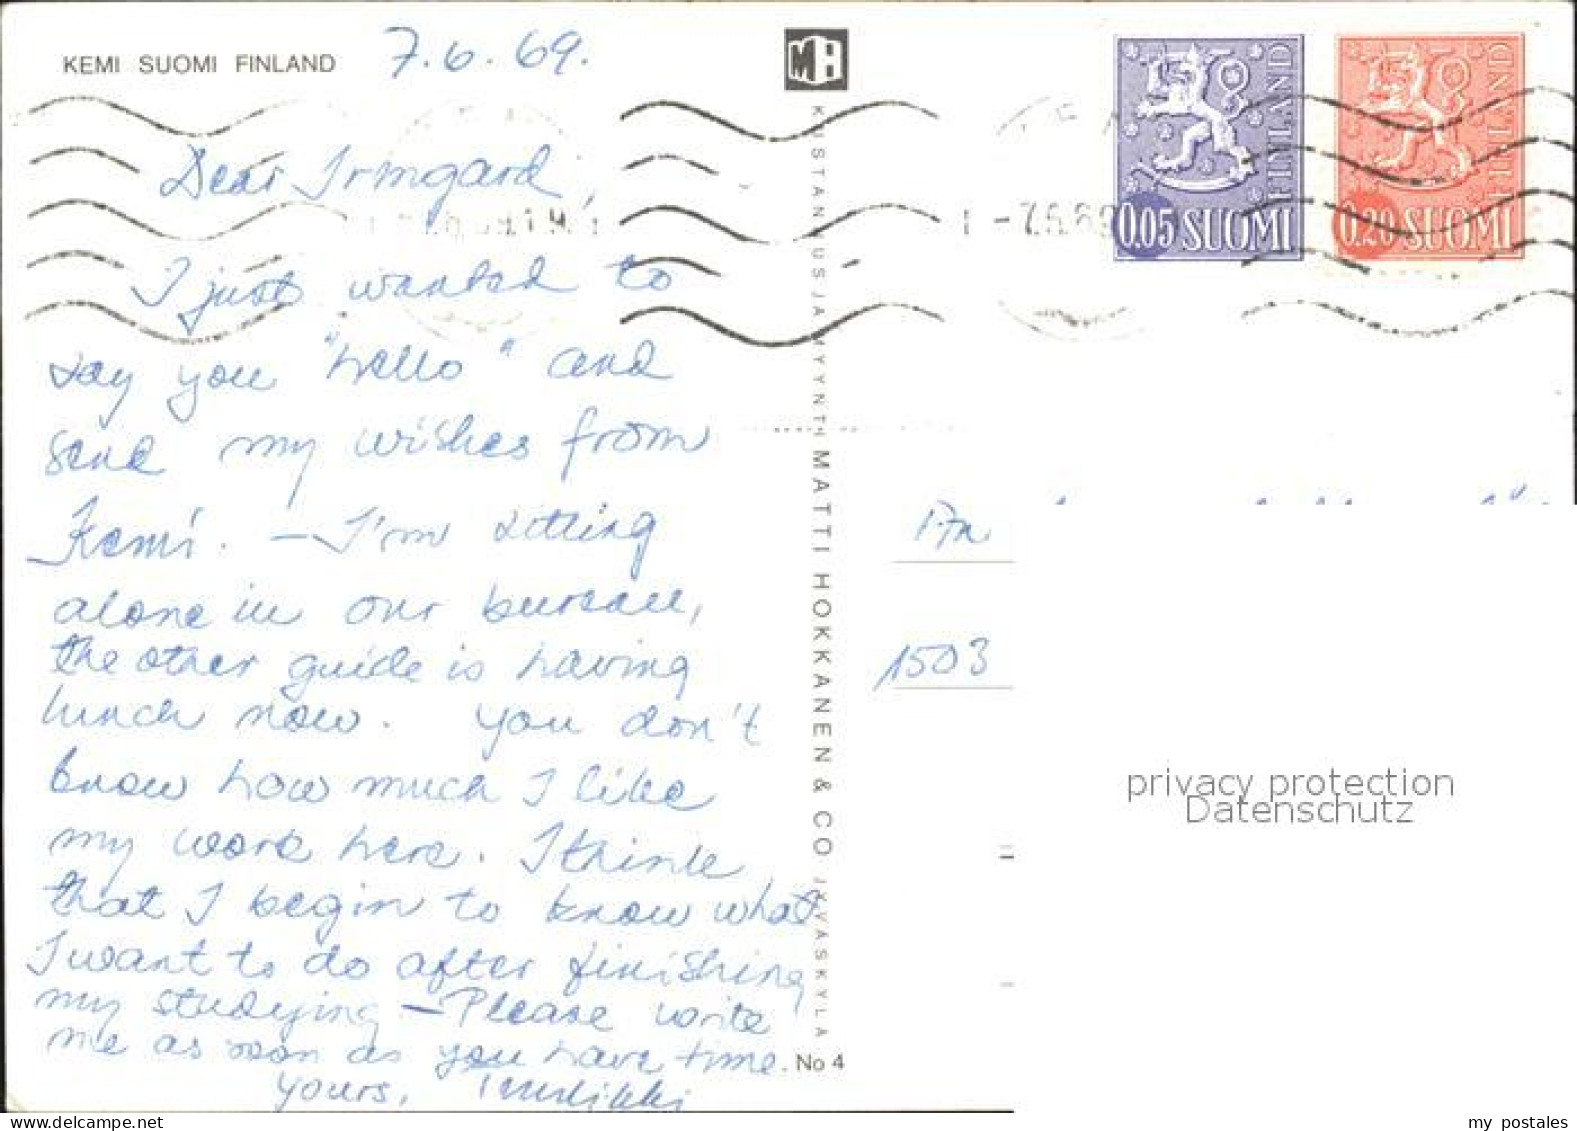 KEMI SUOMI FINLAND
7.6.69.
Dear Irmgard,
I just wanted to
say you "hello" and
send my wishes from
Kemi. — I'm sitting
alone in our bureau,
the other guide is having
lunch now. You don't
know how much I like
my work here. I think
that I begin to know what
I want to do after finishing
my studying — Please write
me as soon as you have time.
yours, Tuulikki
MH
KUSTANNUS JA MYYNTI MATTI HOKKANEN & CO JYVÄSKYLÄ
No 4
0.05 SUOMI
FINLAND
0.20 SUOMI
FINLAND
-7.6.69
1503
privacy protection
Datenschutz
delcampe.net
my postales